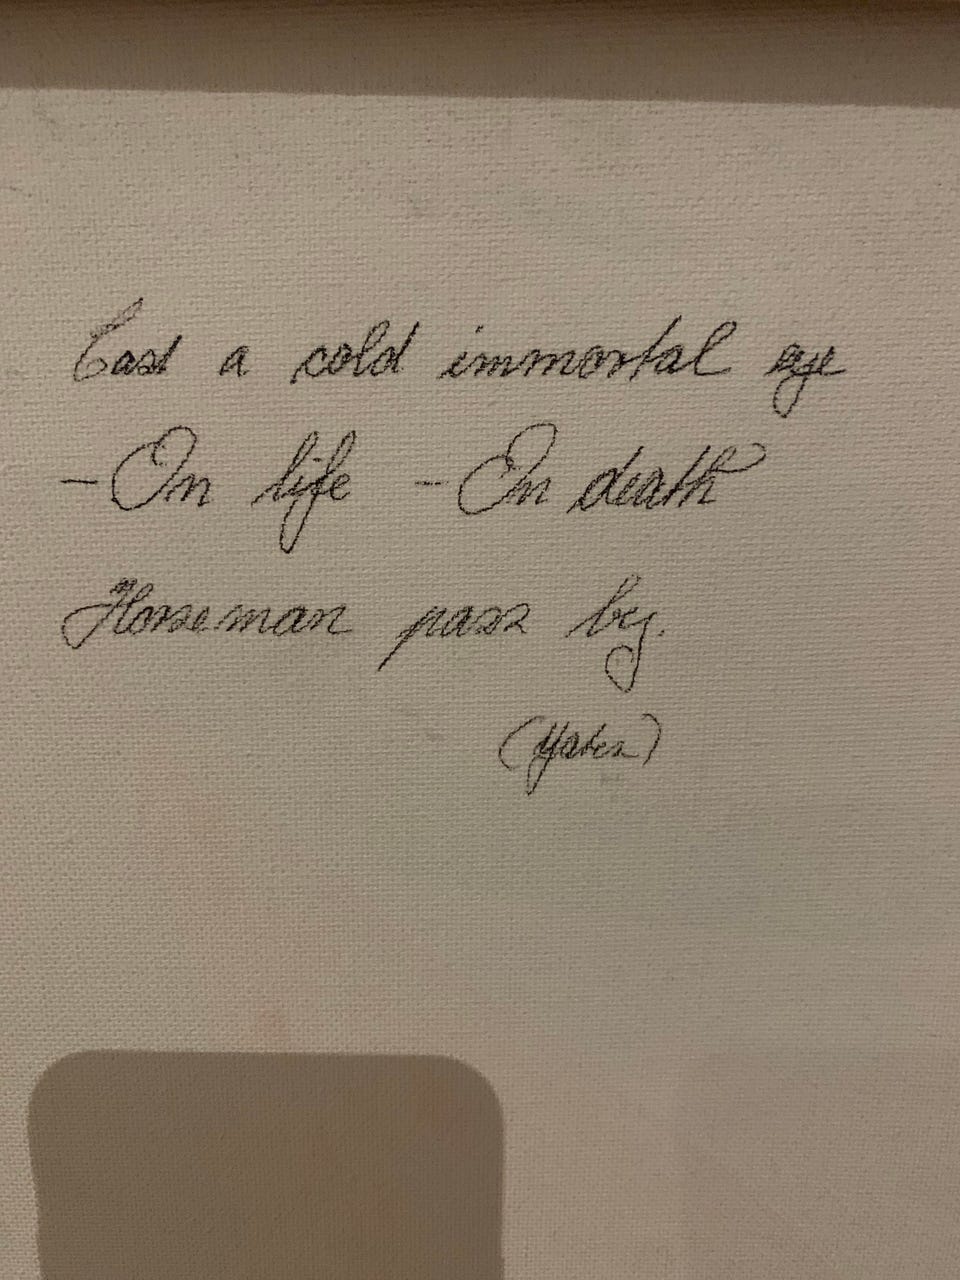 Cast a cold immortal eye
- On life - On death
Horseman pass by.
(Yates)